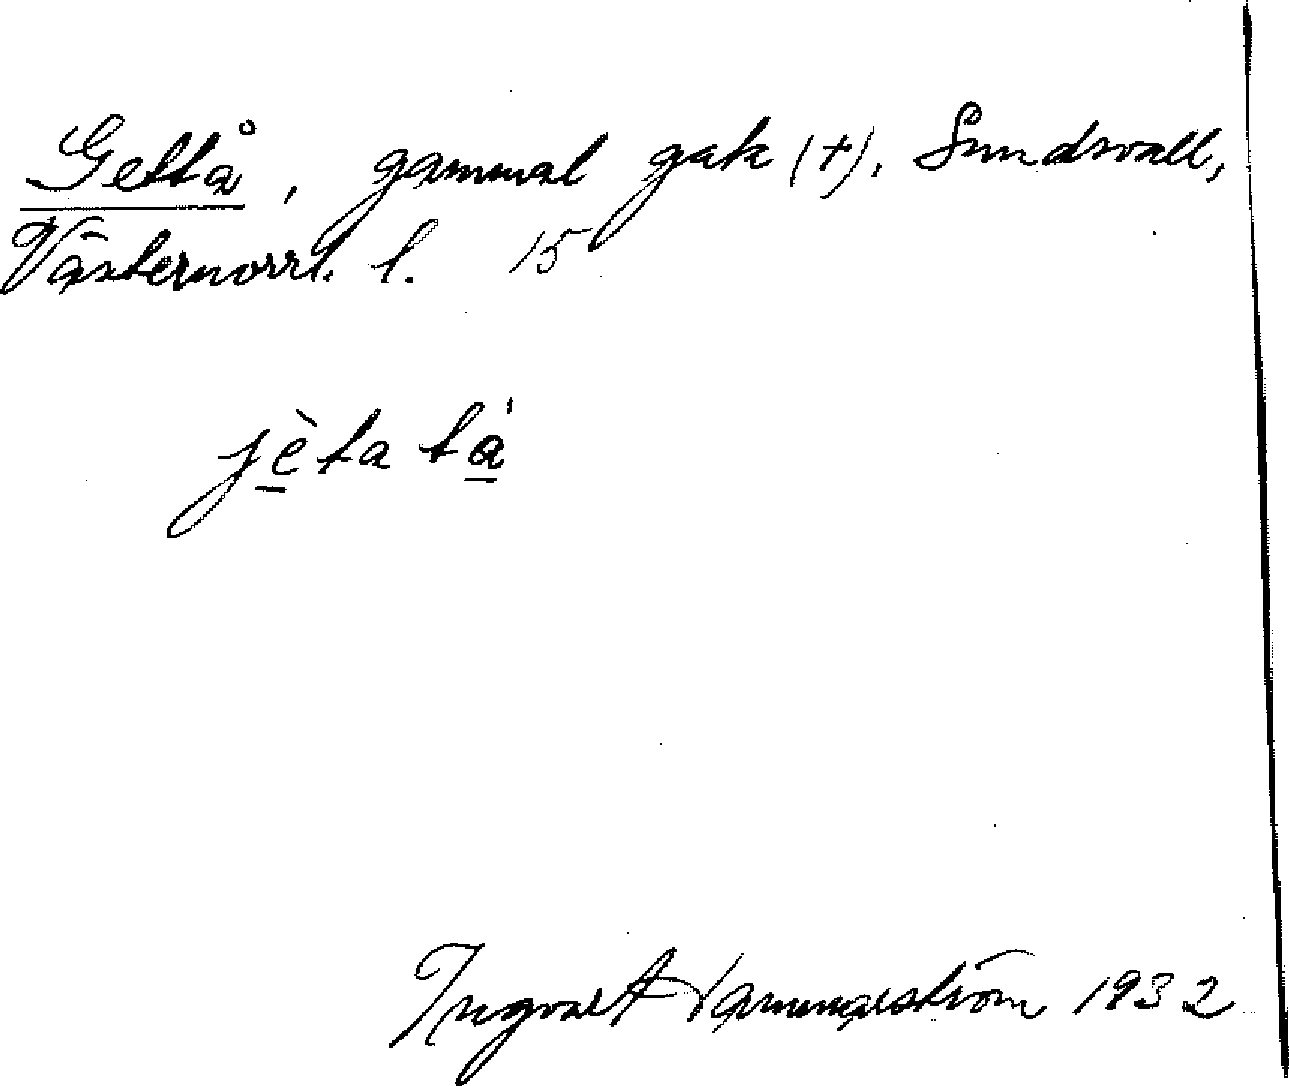 Gettå, gammal gata (+), Sundsvall,
Västernorrl. l. 15
jèta tá
Ingvar Hammarström 1932